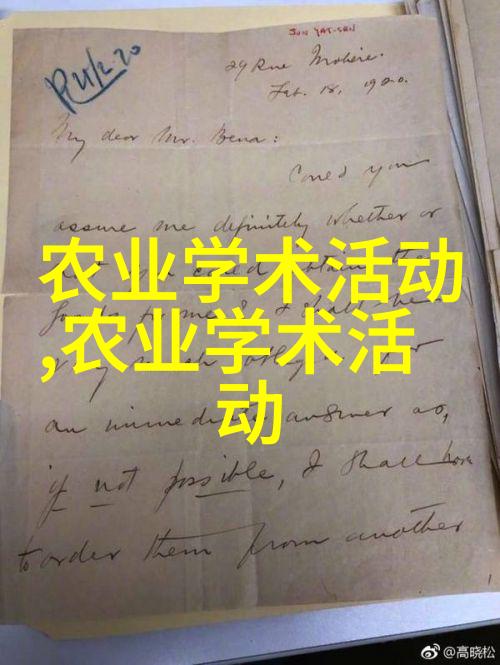 SUN YAT-SEN
R 21/2.20
29 Rue Molière.
Feb. 18, 1920.
My dear Mr. Bena:
Could you
assure me definitely whether or
not you could obtain the
农业学术活动
,农业学术活
动
an immediate answer as,
if not possible, I shall have
to order them from another
@高晓松